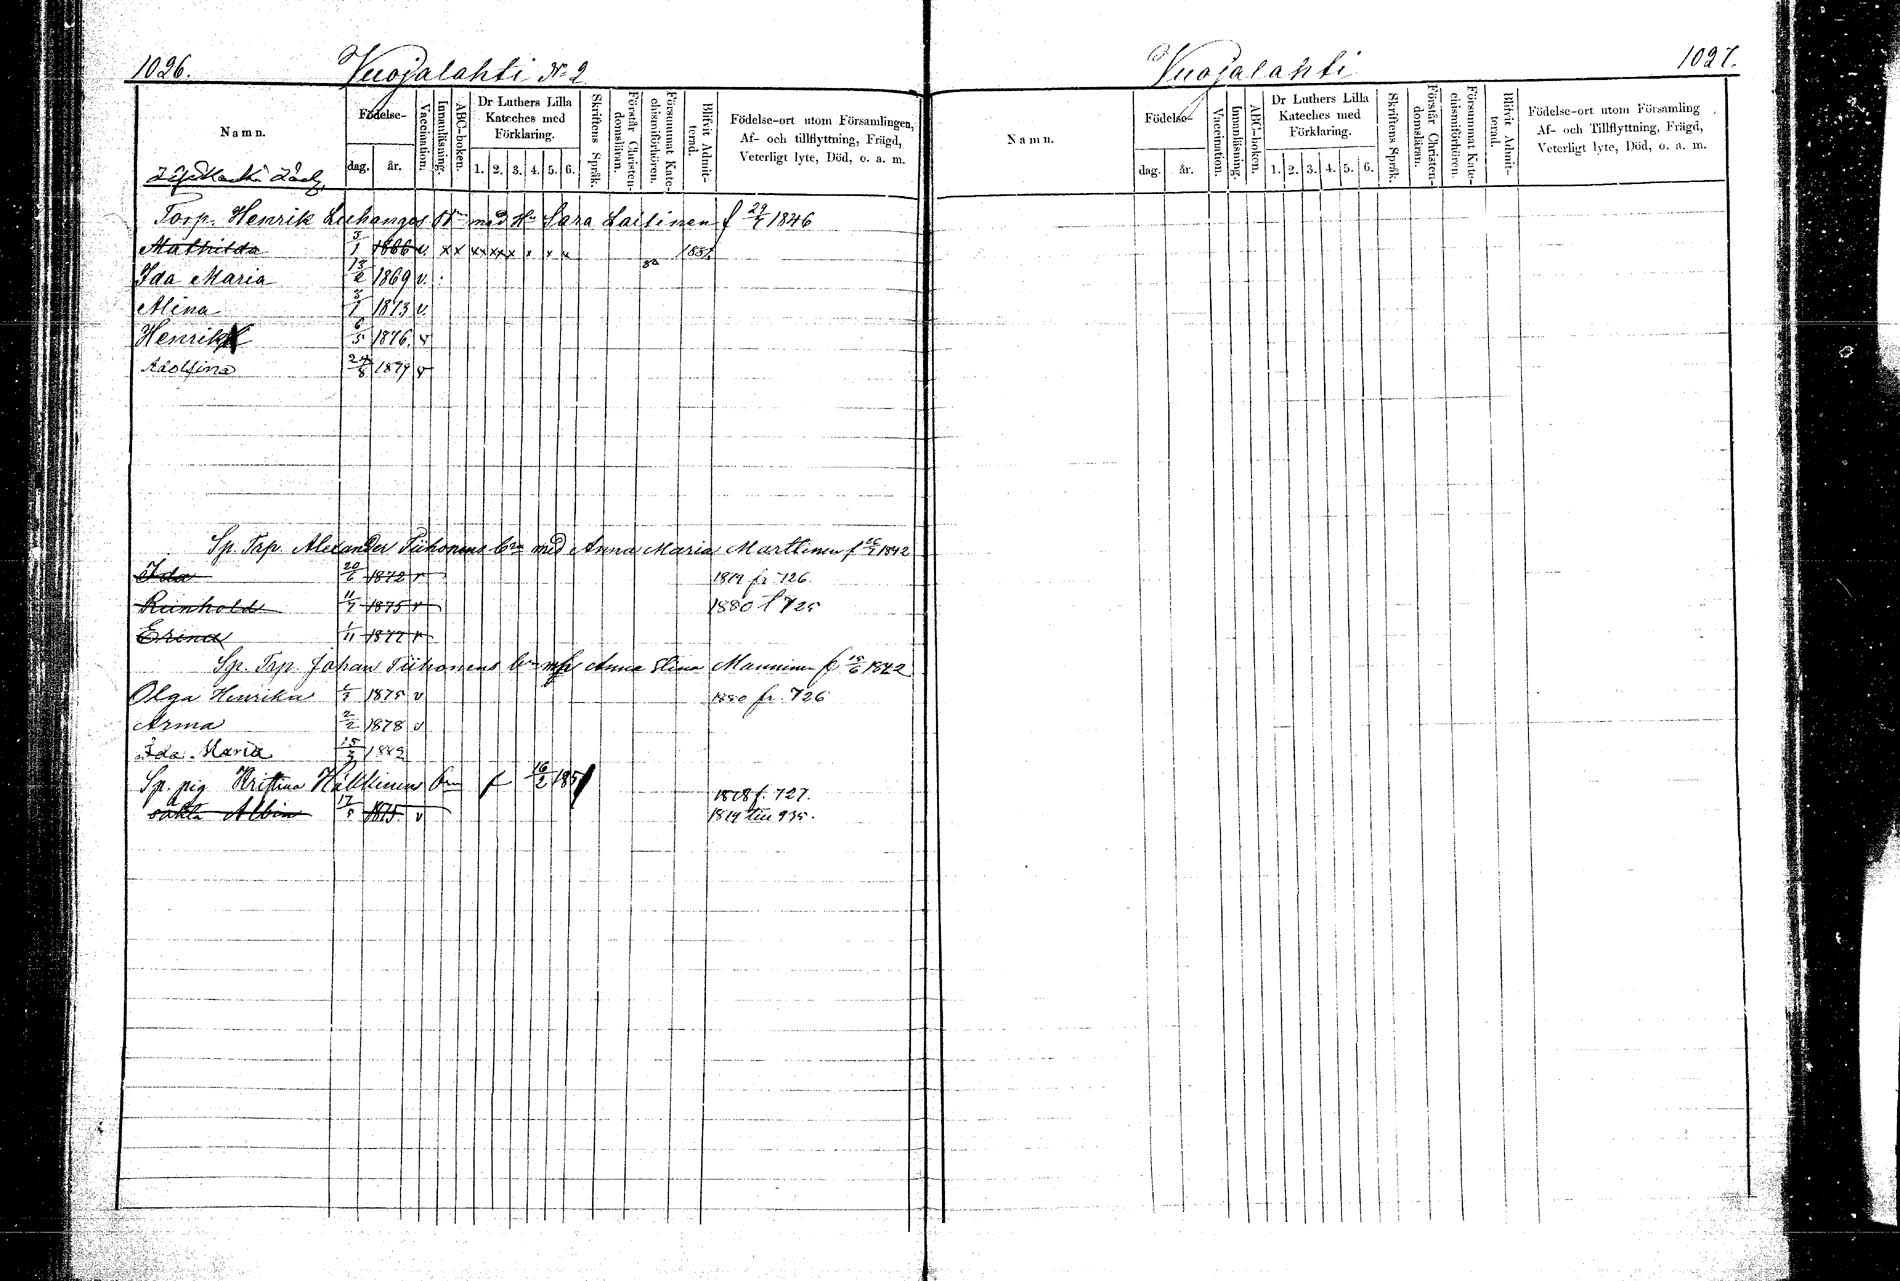 1026. Vuojalahti No 2
Namn. Födelse- dag. år. Vaccination. Innanläsning. ABC-boken. Dr Luthers Lilla Kateches med Förklaring. 1. 2. 3. 4. 5. 6. Skriftens Språk. Förstår Christendomsläran. Försummat Katechismiförhören. Blifvit Admitterad. Födelse-ort utom Församlingen, Af- och tillflyttning, Frägd, Veterligt lyte, Död, o. a. m.
Torp. Henrik Luhanges med Sara Laitinen f 29/7 1846
Mathilda 3/1 1866 v. x x x x x x x x x
Ida Maria 13/2 1869 v.
Alina 3/1 1873 v.
Henrik 6/5 1876. v
Adolfina 24/8 1879 v
Sp. Trp. Alexander Tiihonens brn med Anna Maria Marttinen f 1842
Ida 20/6 1872 v 1879 fr. 726.
Reinhold 11/7 1875 v 1880 f 725
Erina 1/11 1877 v
Sp. Trp. Johan Tiihonens brn Anna Stina Manninen f 15/6 1842
Olga Henrika 1875 v 1880 fr. 726
Arma 2/2 1878 v
Ida Maria 15/3 1882
Sp. pig Kristina Häkkinens brn f 16/2 185
1878 f. 727.
oäkta Albin 17/5 1875. v 1879 till 935.
Vuojalahti 1027.
Namn. Födelse- dag. år. Vaccination. Innanläsning. ABC-boken. Dr Luthers Lilla Kateches med Förklaring. 1. 2. 3. 4. 5. 6. Skriftens Språk. Förstår Christendomsläran. Försummat Katechismiförhören. Blifvit Admitterad. Födelse-ort utom Församling Af- och Tillflyttning, Frägd, Veterligt lyte, Död, o. a. m.